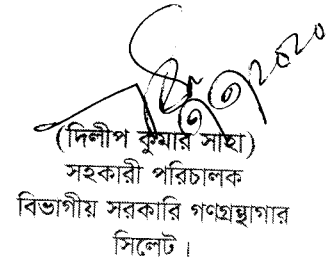 (দিলীপ কুমার সাহা)
সহকারী পরিচালক
বিভাগীয় সরকারি গণগ্রন্থাগার
সিলেট।